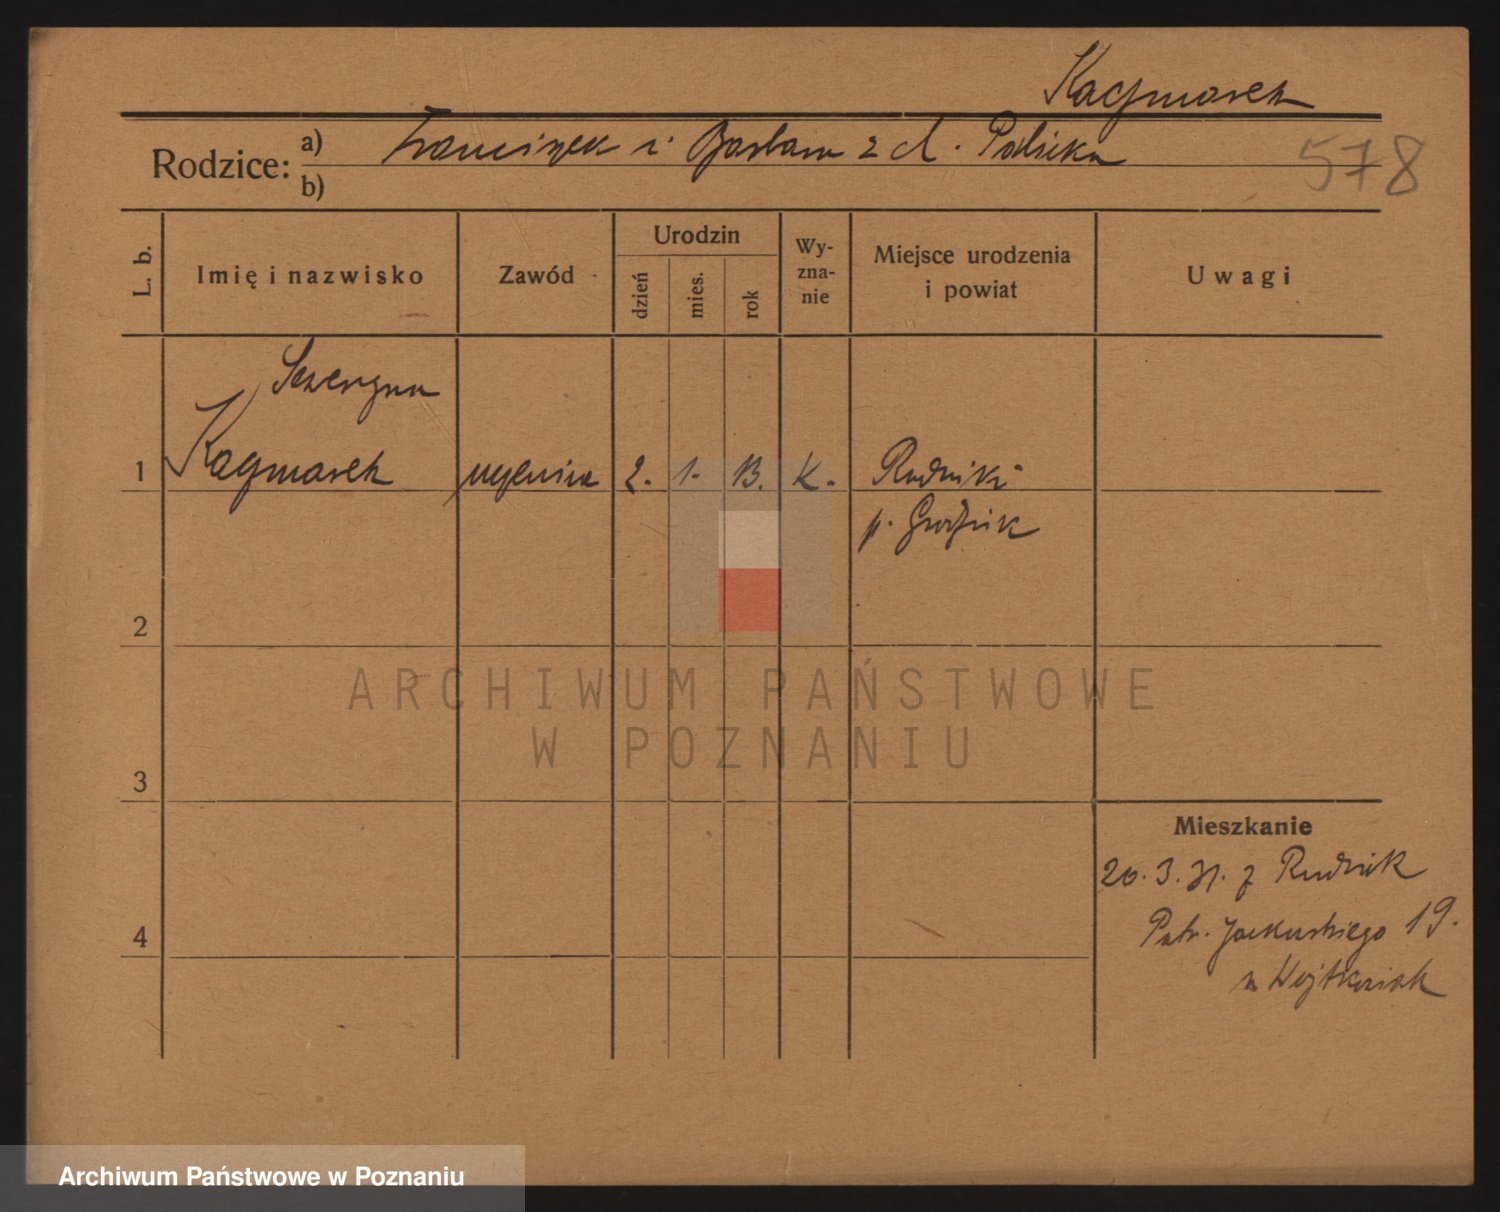 Kaczmarek
Rodzice: a) Franciszek i Barbara z d. Palicka
b)
578
L. b.
Imię i nazwisko
Zawód
Urodzin
dzień
mies.
rok
Wy-
zna-
nie
Miejsce urodzenia
i powiat
Uwagi
Seweryna
1 Kaczmarek uczenica 2. 1. 13. K. Rudniki
p. Grodzisk
2
3
4
Mieszkanie
20. 3. 31. z Rudnik
Patr. Jackowskiego 19.
u Wojtkowiak
ARCHIWUM PAŃSTWOWE
W POZNANIU
Archiwum Państwowe w Poznaniu